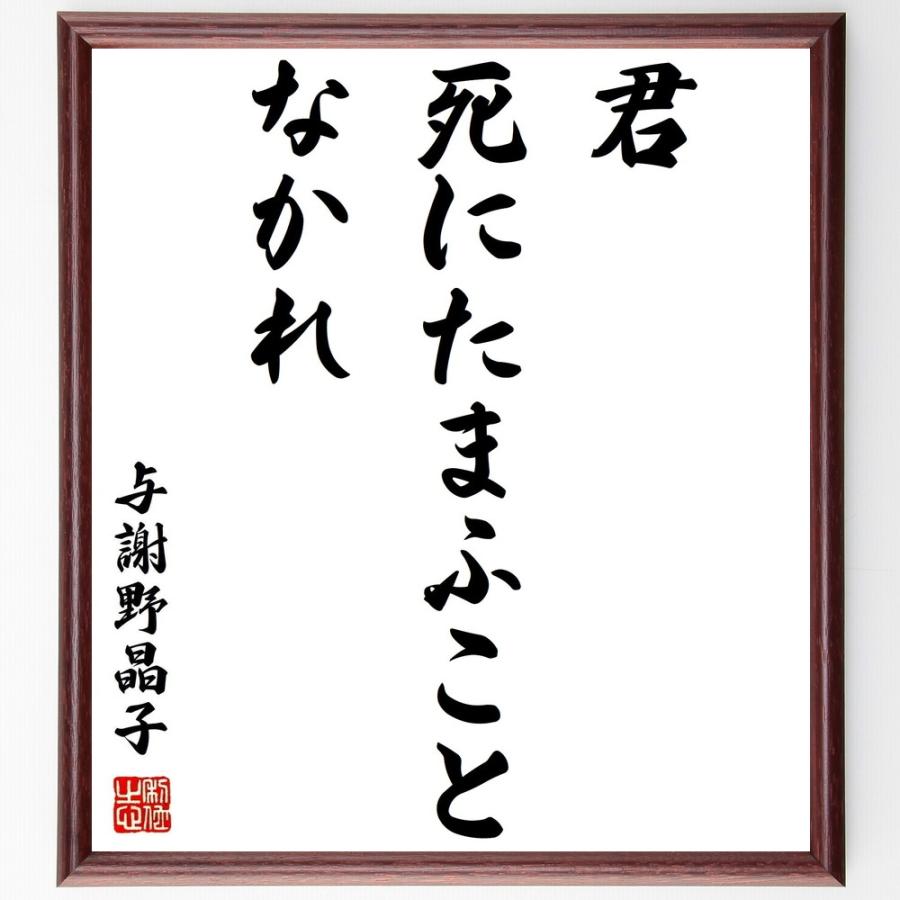 君
死にたまふこと
なかれ
与謝野晶子